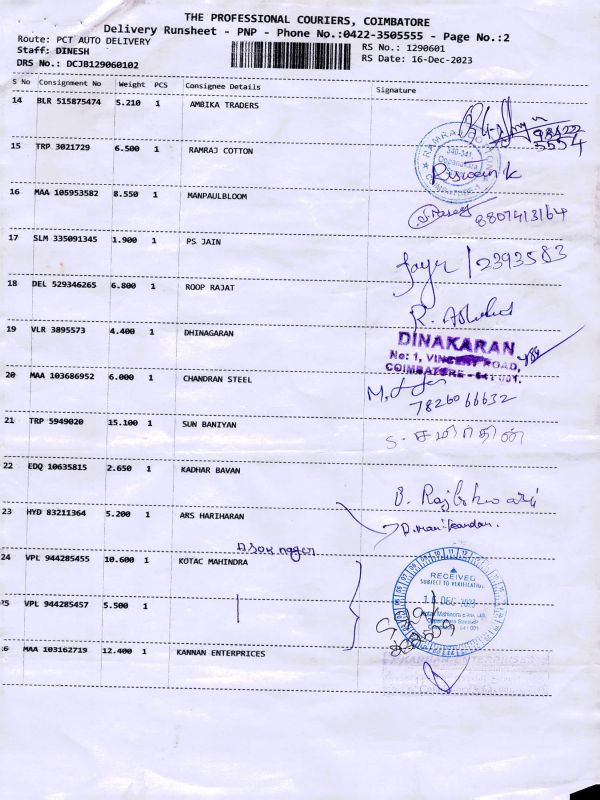 THE PROFESSIONAL COURIERS, COIMBATORE
Delivery Runsheet - PNP - Phone No.:0422-3505555 - Page No.:2
Route: PCT AUTO DELIVERY
RS No.: 1290601
Staff: DINESH
RS Date: 16-Dec-2023
DRS No.: DCJB129060102
S No Consignment No Weight PCS Consignee Details Signature
14 BLR 515875474 5.210 1 AMBIKA TRADERS
98422
5554
15 TRP 3021729 6.500 1 RAMRAJ COTTON
340-341
Oppanakara
16 MAA 105953582 8.550 1 MANPAULBLOOM
8807413164
17 SLM 335091345 1.900 1 PS JAIN
2393583
18 DEL 529346265 6.800 1 ROOP RAJAT
19 VLR 3895573 4.400 1 DHINAGARAN
DINAKARAN
No: 1, VINCENT ROAD,
COIMBATORE - 641 001.
20 MAA 103686952 6.000 1 CHANDRAN STEEL
7826066632
21 TRP 5949020 15.100 1 SUN BANIYAN
22 EDQ 10635815 2.650 1 KADHAR BAVAN
23 HYD 83211364 5.200 1 ARS HARIHARAN
24 VPL 944285455 10.600 1 KOTAC MAHINDRA
RECEIVED
SUBJECT TO VERIFICATION
DEC 2023
VPL 944285457 5.500 1
MAA 103162719 12.400 1 KANNAN ENTERPRICES